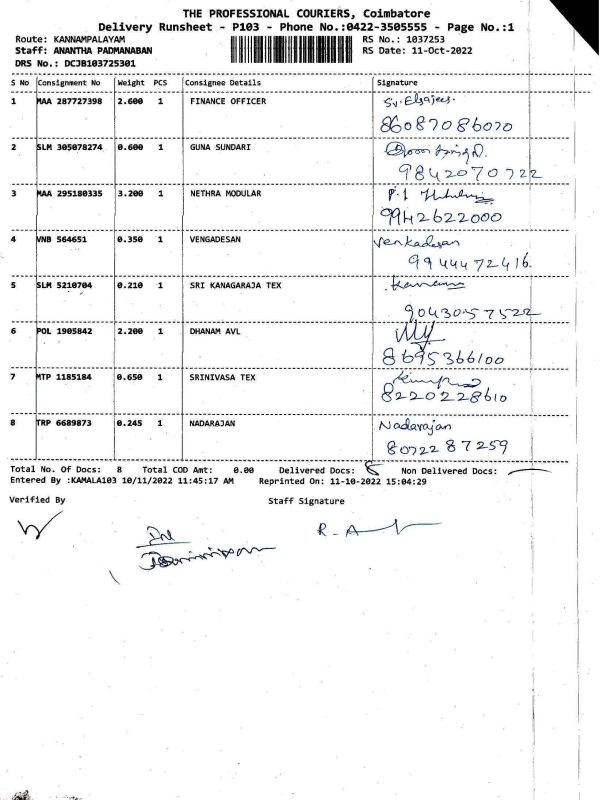 THE PROFESSIONAL COURIERS, Coimbatore
Delivery Runsheet - P103 - Phone No.:0422-3505555 - Page No.:1
Route: KANNAMPALAYAM RS No.: 1037253
Staff: ANANTHA PADMANABAN RS Date: 11-Oct-2022
DRS No.: DCJB103725301
S No Consignment No Weight PCS Consignee Details Signature
1 MAA 287727398 2.600 1 FINANCE OFFICER
86087086070
2 SLM 305078274 0.600 1 GUNA SUNDARI
9842070722
3 MAA 295180335 3.200 1 NETHRA MODULAR
9942622000
4 VNB 564651 0.350 1 VENGADESAN Venkadesan
9944472416.
5 SLM 5210704 0.210 1 SRI KANAGARAJA TEX
9043057522
6 POL 1905842 2.200 1 DHANAM AVL
8695366100
7 MTP 1185184 0.650 1 SRINIVASA TEX
8220228610
8 TRP 6689873 0.245 1 NADARAJAN Nadarajan
8072287259
Total No. Of Docs: 8 Total COD Amt: 0.00 Delivered Docs: 8 Non Delivered Docs:
Entered By :KAMALA103 10/11/2022 11:45:17 AM Reprinted On: 11-10-2022 15:04:29
Verified By Staff Signature